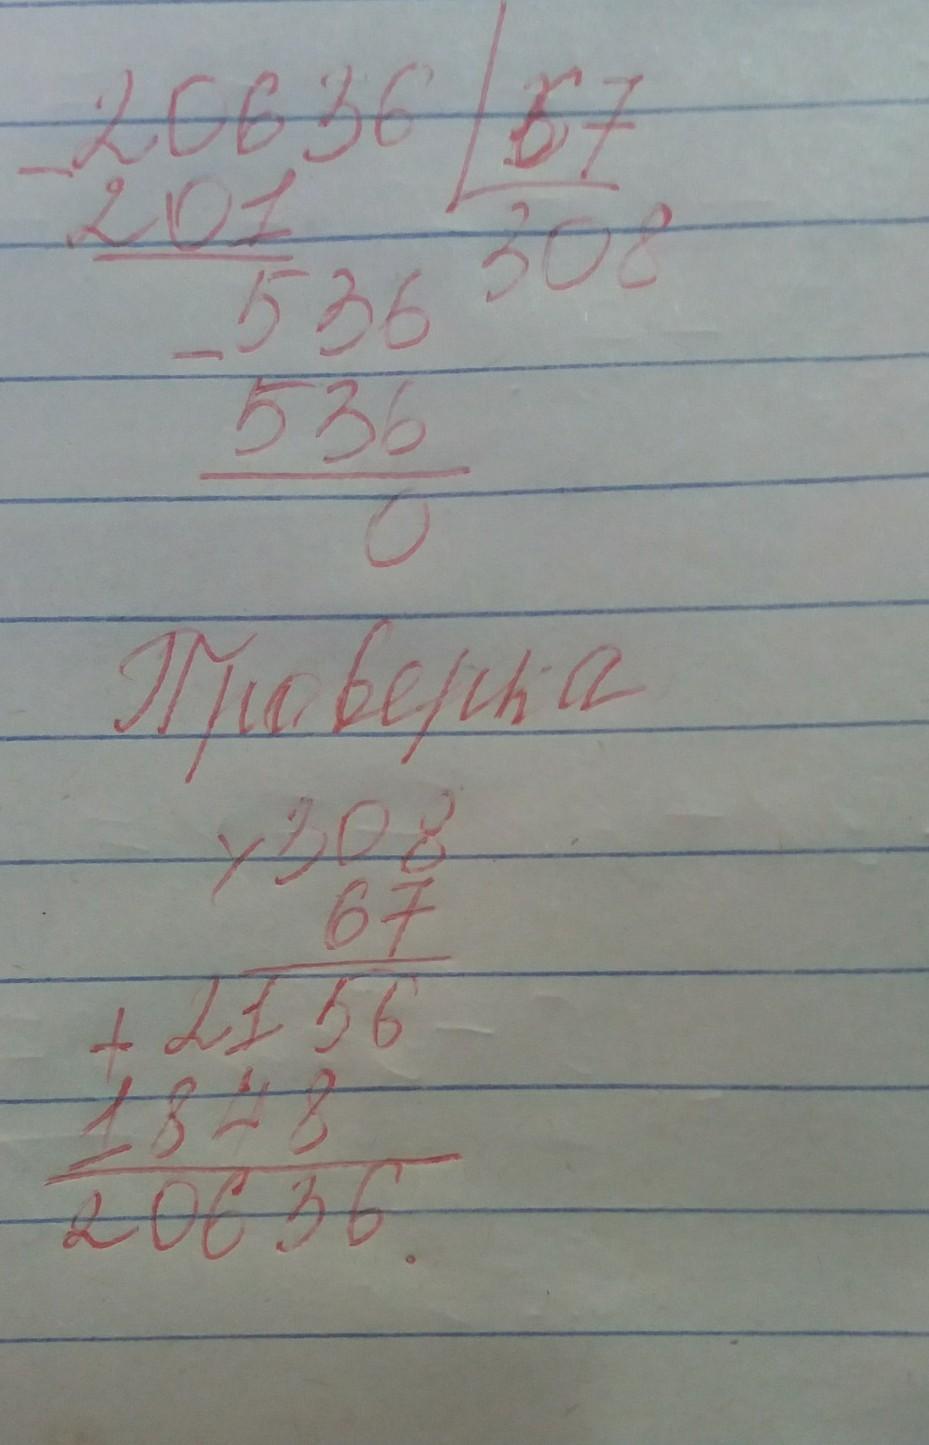 -20636 | 67
201 308
-536
536
0
Проверка
×308
67
+2156
1848
20636.